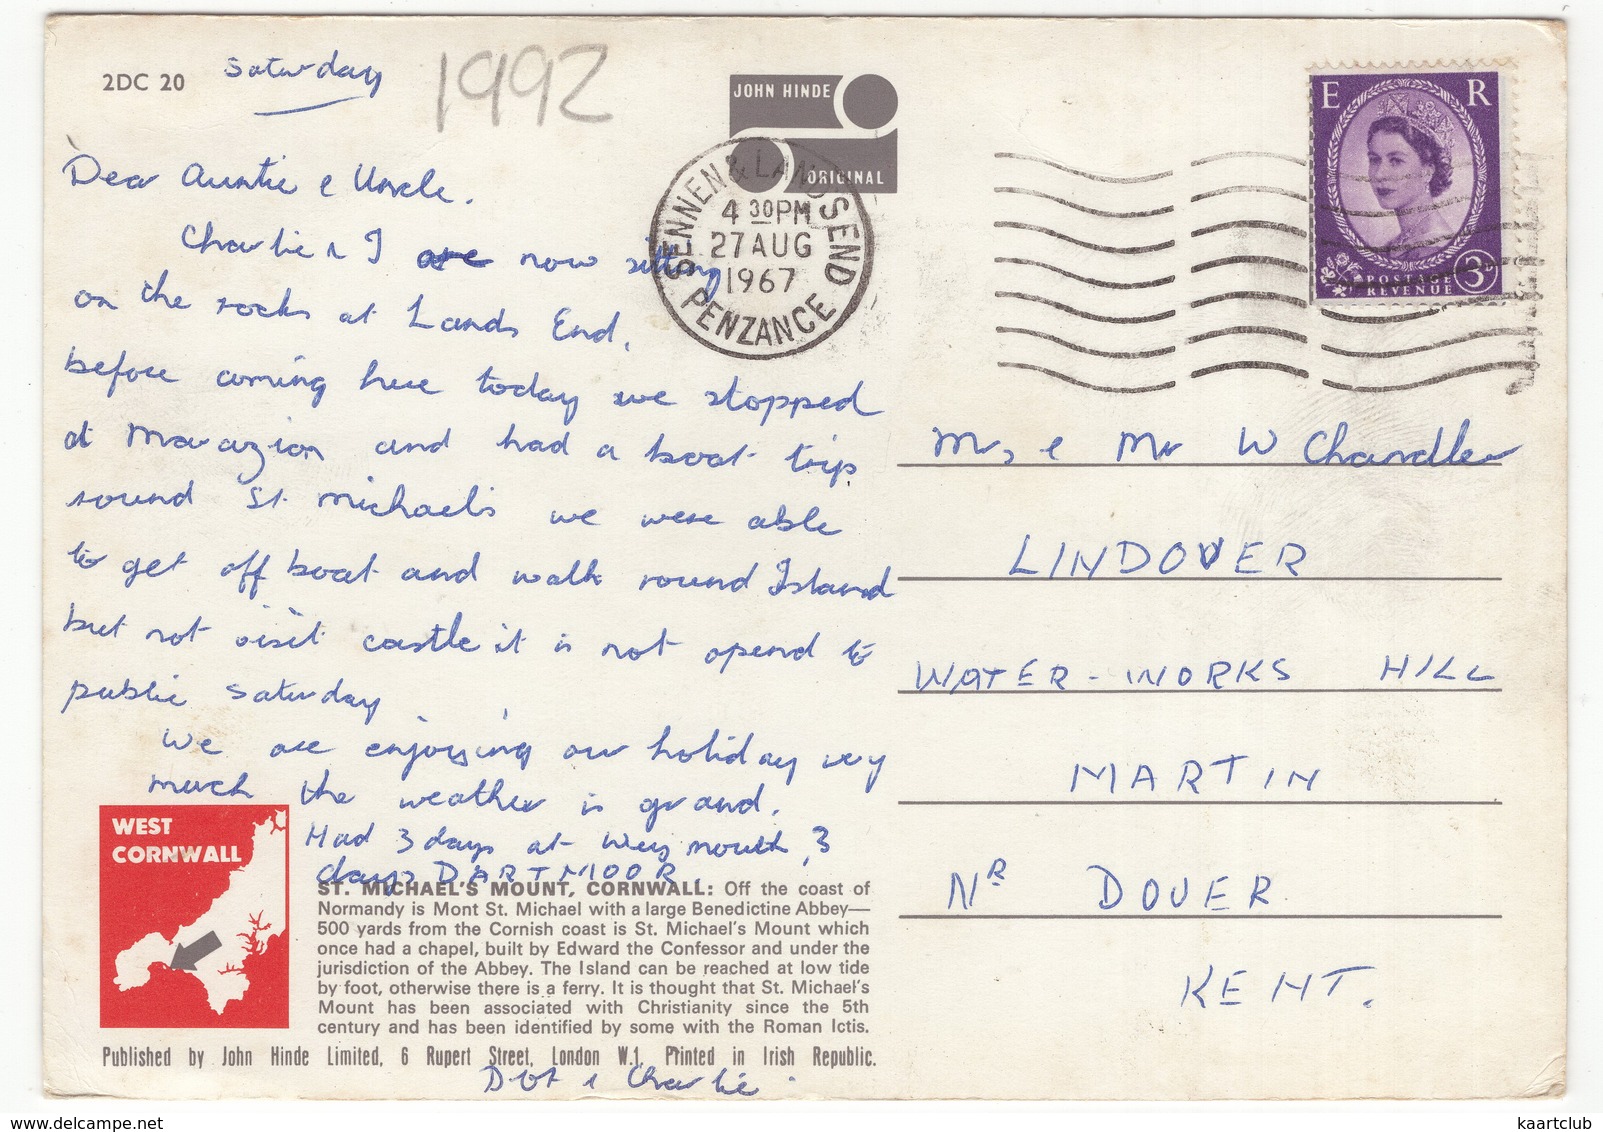 2DC 20
Saturday
1992
JOHN HINDE
ORIGINAL
SENNEN & LANDS END
4 30PM
27 AUG
1967
PENZANCE
E R
POSTAGE
REVENUE
3D
Dear Auntie & Uncle.
Charlie & I are now sitting
on the rocks at Lands End.
before coming here today we stopped
at Marazion and had a boat trip
round St. Michaels we were able
to get off boat and walk round Island
but not visit castle it is not opend to
public Saturday
We are enjoying our holiday very
much the weather is grand.
Had 3 days at Weymouth, 3
days DARTMOOR.
Dot & Charlie.
Mrs & Mr W Chandler
LINDOVER
WATER-WORKS HILL
MARTIN
NR DOVER
KENT.
WEST
CORNWALL
ST. MICHAEL'S MOUNT, CORNWALL: Off the coast of
Normandy is Mont St. Michael with a large Benedictine Abbey—
500 yards from the Cornish coast is St. Michael's Mount which
once had a chapel, built by Edward the Confessor and under the
jurisdiction of the Abbey. The Island can be reached at low tide
by foot, otherwise there is a ferry. It is thought that St. Michael's
Mount has been associated with Christianity since the 5th
century and has been identified by some with the Roman Ictis.
Published by John Hinde Limited, 6 Rupert Street, London W.1. Printed in Irish Republic.
kaartclub
delcampe.net